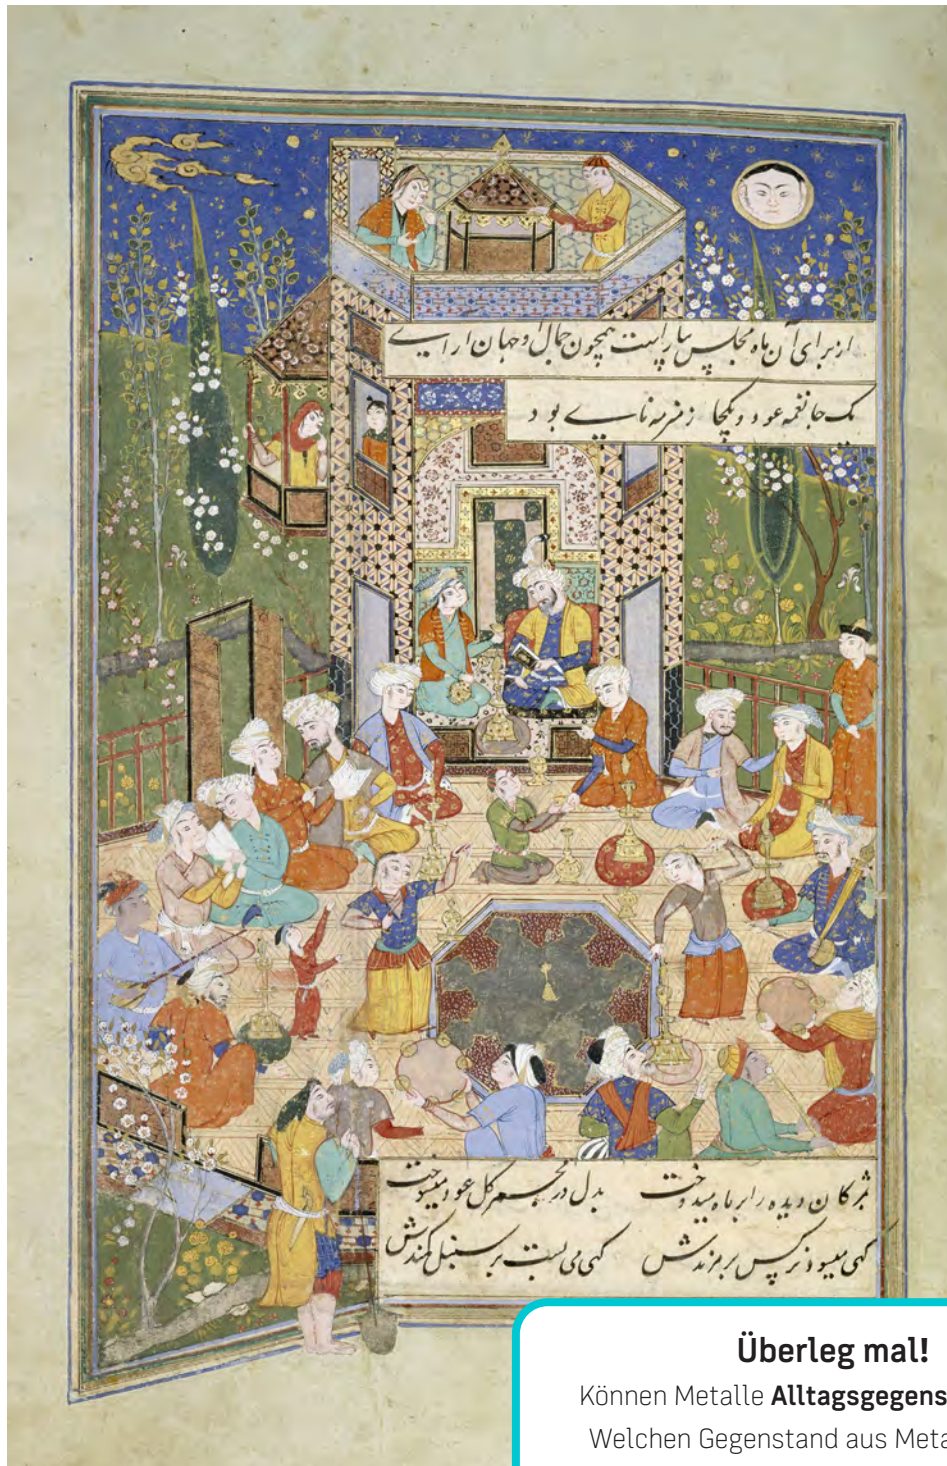 از برای آن ماه مجلس بیاراست همچون جمال او جهان ارایے
یک جا نغمه عود و یکجا زمزمه نایے بود
دیده را بر ماه میدوخت بدل در مجمر گل عود میسوخت
گهی نرگس بر گهی می بست بر سنبل کمندش
Überleg mal!
Können Metalle Alltagsgegens
Welchen Gegenstand aus Meta